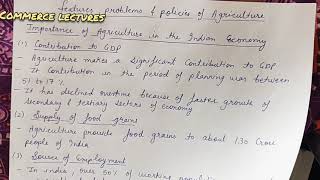 Commerce lectures
Features problems & policies of Agriculture
Importance of Agriculture in the Indian Economy
(1) Contribution to GDP
- Agriculture makes a significant contribution to GDP
- It contribution in the period of planning was between
51 to 17 %
- It has declined overtime because of faster growth of
secondary & tertiary sectors of economy
(2) Supply of food grains
- Agriculture provide food grains to about 130 Crore
people of India
(3) Source of Employment
- In india, over 50% of working